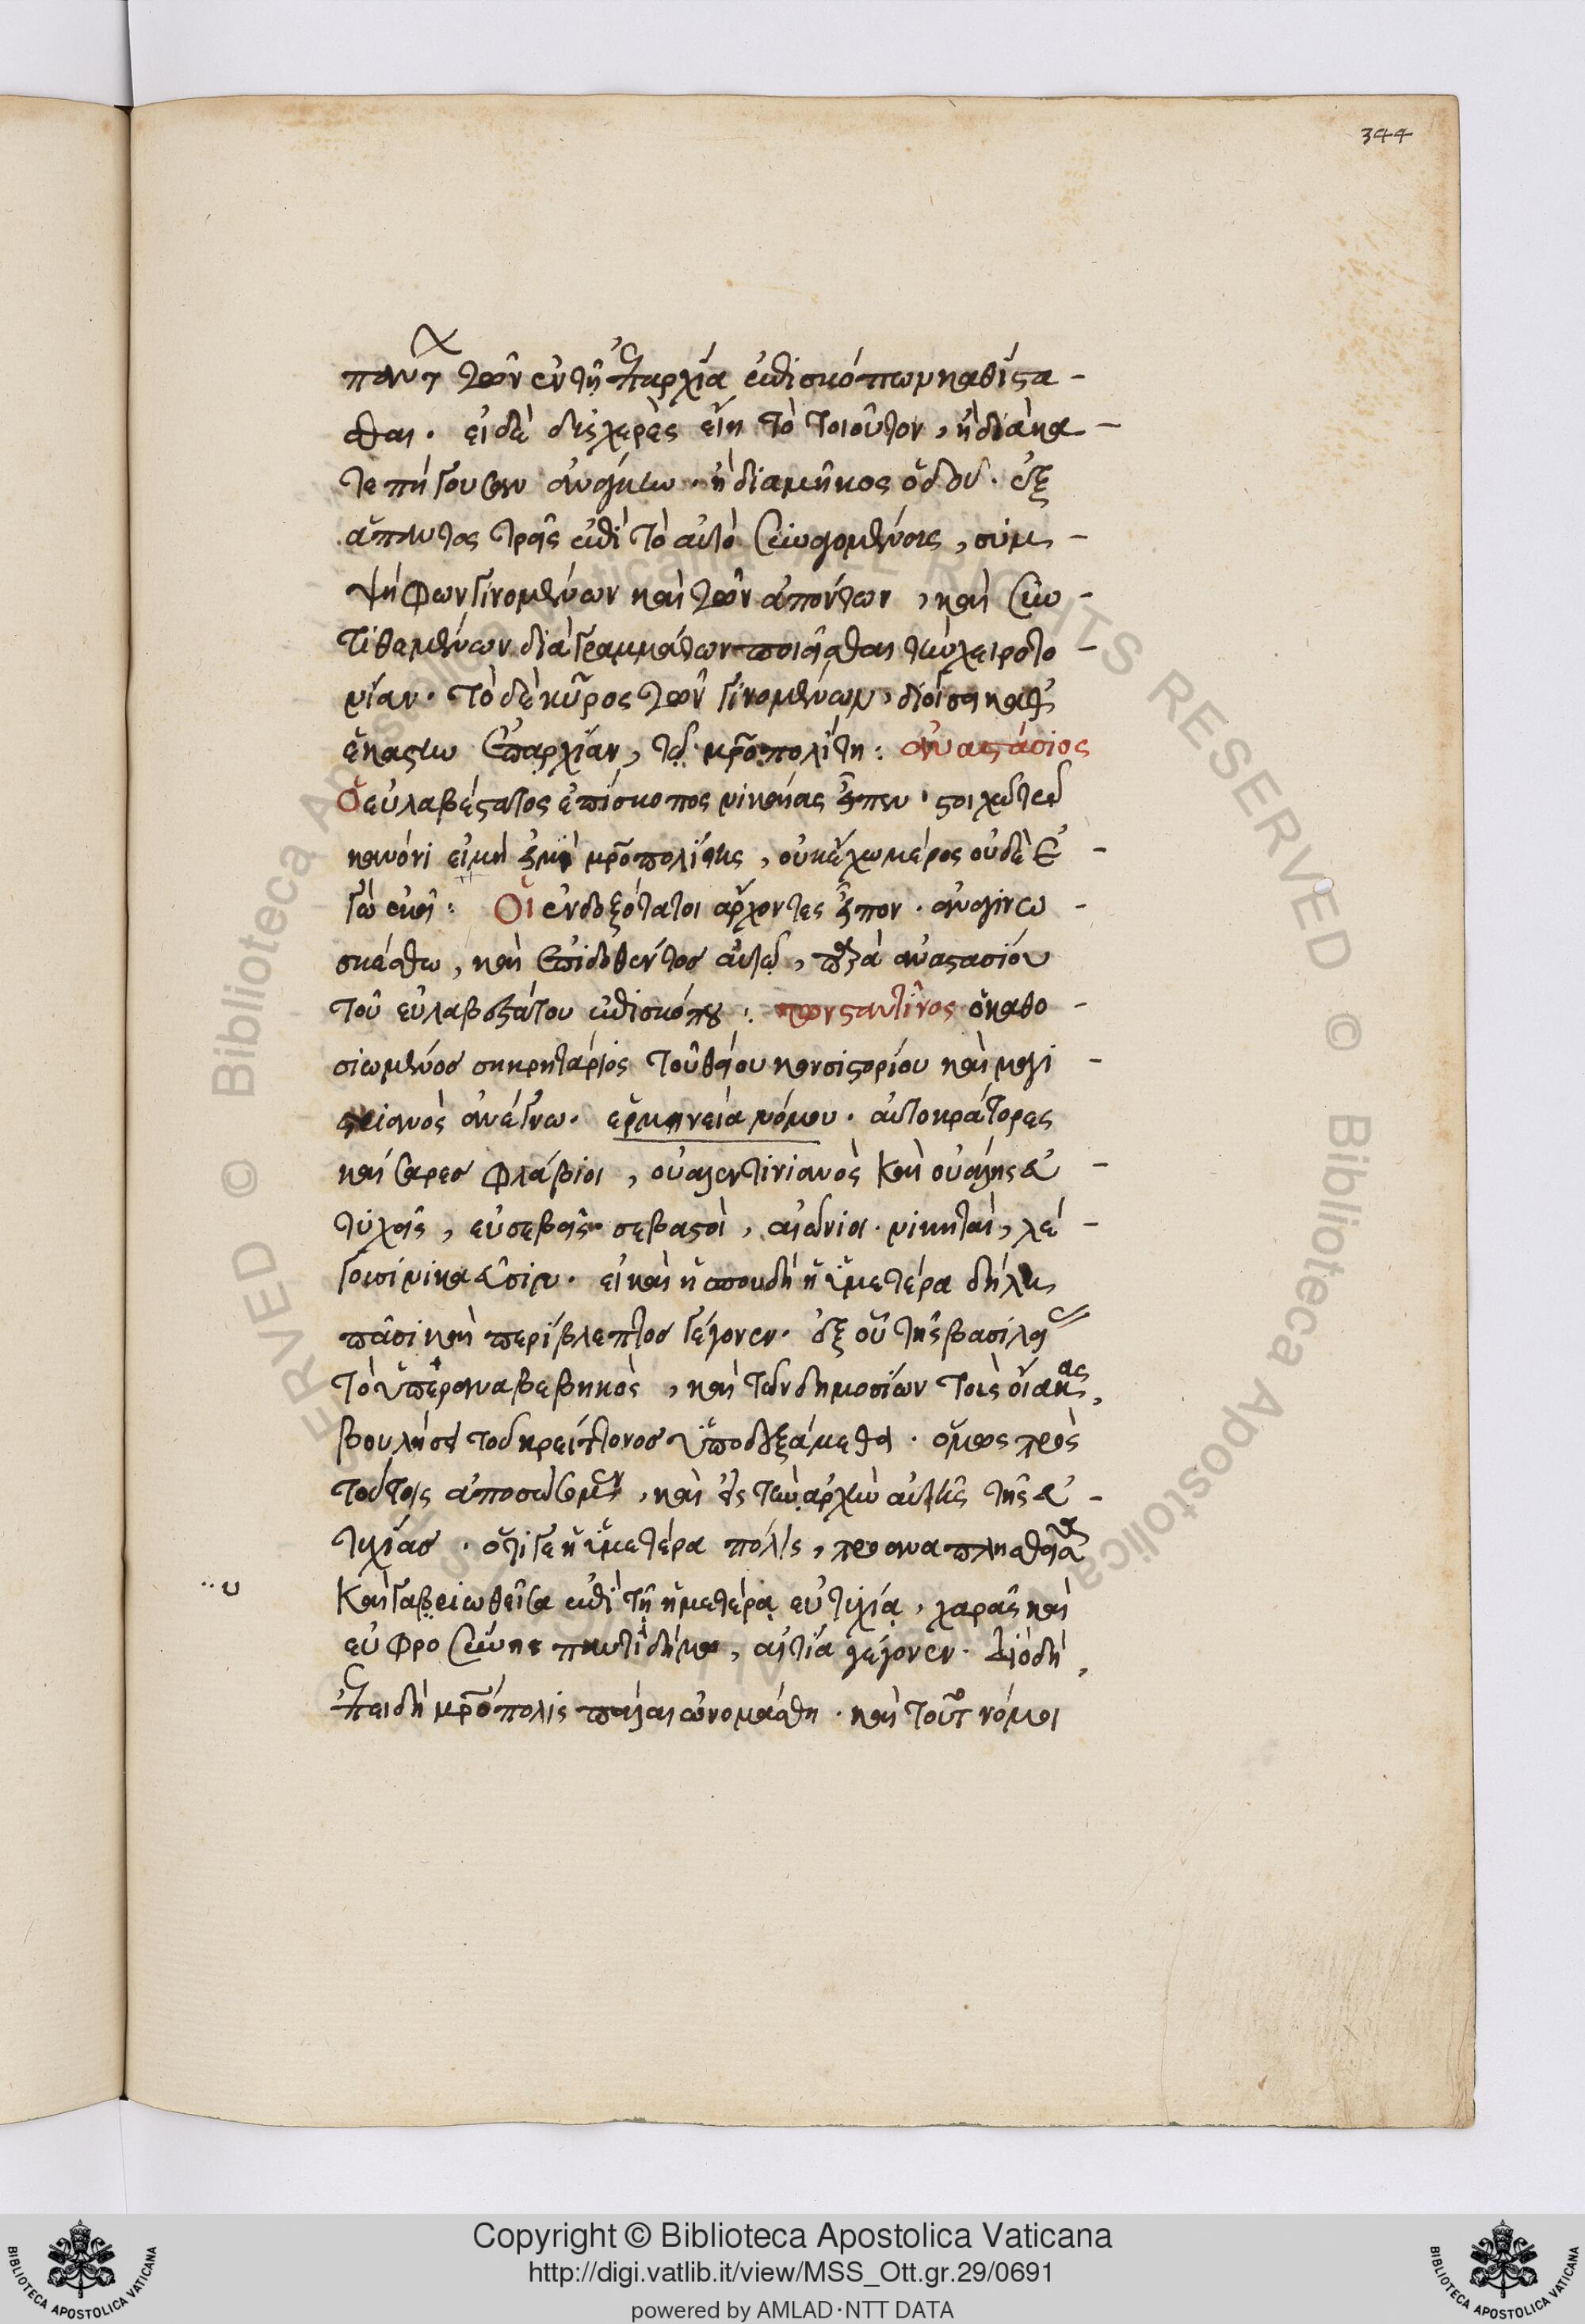 344
πάντων τῶν ἐν τῇ ἐπαρχία ἐπισκόπων καθίστα -
σθαι . εἰ δὲ δυσχερὲς εἴη τὸ τοιοῦτον , ἢ διὰ κα -
τεπήγουσαν ἀνάγκην . ἢ διὰ μῆκος ὁδοῦ . ἐξ
ἅπαντος τρεῖς ἐπὶ τὸ αὐτὸ συναγομένους , συμ -
ψήφων γινομένων καὶ τῶν ἀπόντων , καὶ συν -
τιθεμένων διὰ γραμμάτων ποιεῖσθαι τὴν χειροτο -
νίαν . τὸ δὲ κῦρος τῶν γινομένων , δίδοσθαι καθ
ἑκάστην ἐπαρχίαν , τῷ μητροπολίτη : ἀναστάσιος
ὁ εὐλαβέστατος ἐπίσκοπος νικαίας εἶπεν . στοιχῶ τῷ
κανόνι εἰ μὴ εἰμὶ μητροπολίτης , οὐκ ἔχω μέρος οὐδὲ ἐ -
γὼ ἐκεῖ : Οἱ ἐνδοξότατοι ἄρχοντες εἶπον . ἀναγινω -
σκέσθω , καὶ ἐπιδοθέντος αὐτῷ , παρὰ ἀναστασίου
τοῦ εὐλαβεστάτου ἐπισκόπου : κωνσταντῖνος ὁ καθο -
σιωμένος σηκρητάριος τοῦ θείου κονσιστορίου καὶ μαγι -
στριανὸς ἀνέγνω . ἑρμηνεία νόμου . αὐτοκράτορες
καίσαρες φλάβιοι , οὐαλεντινιανὸς καὶ οὐάλης εὐ -
τυχεῖς , εὐσεβεῖς σεβαστοὶ , αἰώνιοι . νικηταὶ , λέ -
γουσι νικαεῦσιν . εἰ καὶ ἡ σπουδὴ ἡ ἡμετέρα δήλη
πᾶσι καὶ περίβλεπτος γέγονεν . ἐξ οὗ τῆς βασιλείας
τὸ ὑπεραναβεβηκὸς , καὶ τῶν δημοσίων τοὺς οἴακας ,
βουλήσει τοῦ κρείττονος ὑποδεξάμεθα . ὅμως πρὸς
τούτοις ἀποσώζομεν , καὶ εἰς τὴν ἀρχὴν αὐτῆς τῆς εὐ -
τυχίας . ὅτι γε ἡ ὑμετέρα πόλις ,
καὶ εἰωθεῖσα ἐπὶ τῇ ἡμετέρᾳ εὐτυχίᾳ , χαρᾶς καὶ
εὐφροσύνης παντὶ δήμῳ , αἰτία γέγονεν . διὸ δὴ ,
ἐπειδὴ μητρόπολις πάλαι ὠνομάσθη . καὶ τοῦτο νόμοι
Copyright © Biblioteca Apostolica Vaticana
http://digi.vatlib.it/view/MSS_Ott.gr.29/0691
powered by AMLAD·NTT DATA
BIBLIOTECA APOSTOLICA VATICANA
BIBLIOTECA APOSTOLICA VATICANA